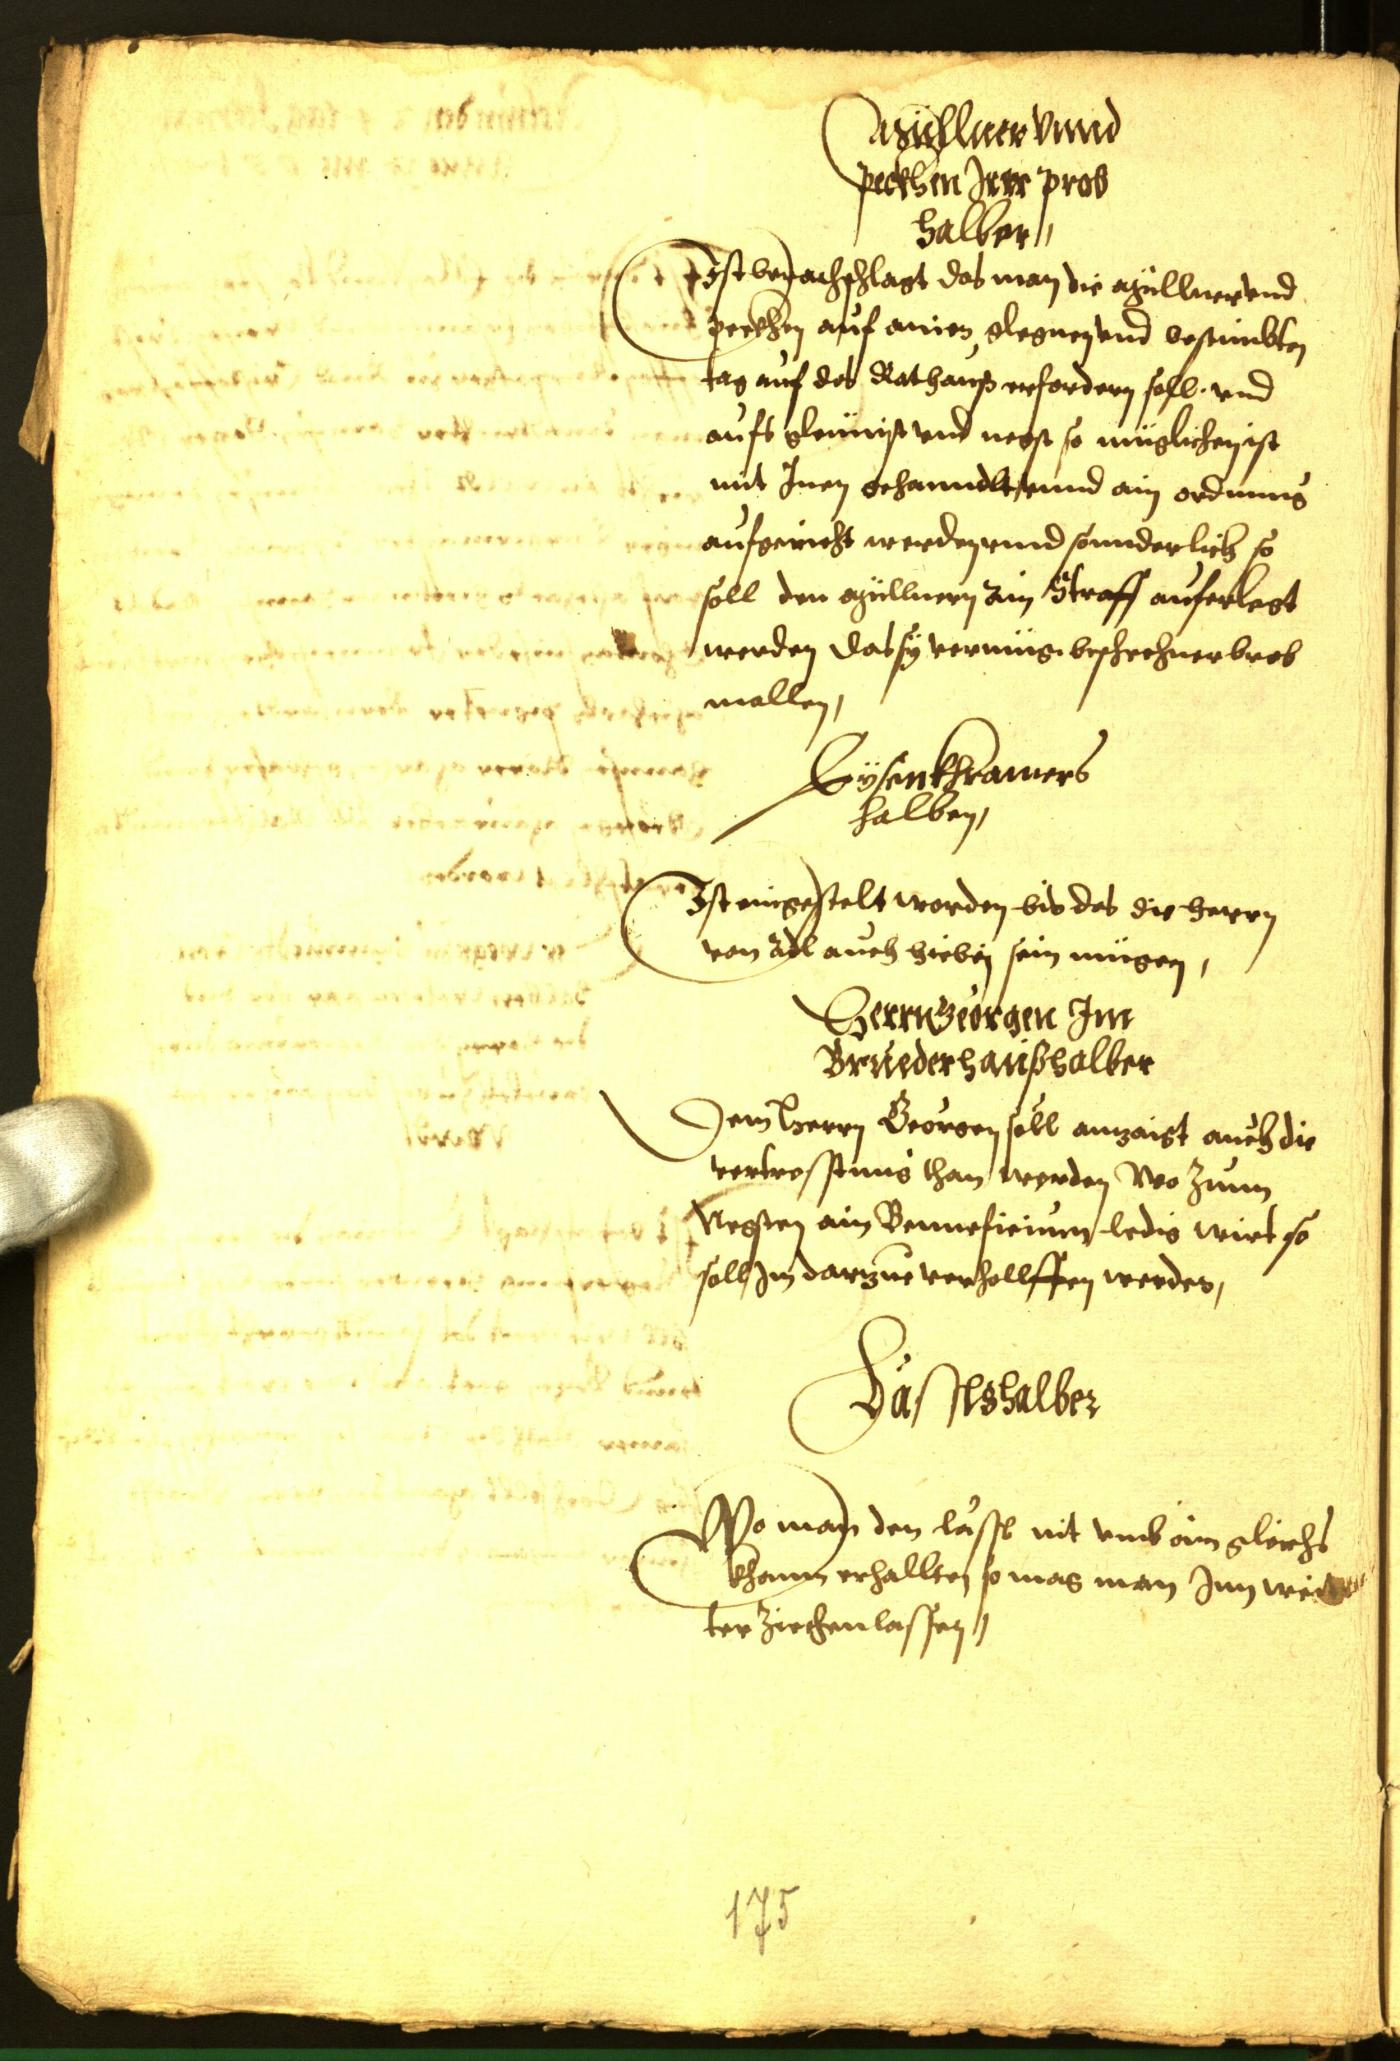 Müllner vnnd
peckhen Irer prob
halber,
Ist beratschlagt das man die müllner vnd
peckhen auf ainen glegnen vnd bestimbten
tag auf das Rathauß erfordern soll. vnd
aufs gleimist vnd negst so müglichen ist
mit Inen gehanndlt, vnnd ain ordnung
aufgericht werden vnnd sonnderlich so
soll den müllnern ain Straff auferlegt
werden das sy vermüg beschechner brob
mallen,
Eysenkhramers
halben,
Ist eingestelt worden bis das die herrn
von Adl auch hiebej sein mügen,
Herrn Georgen Im
Bruederhauß halber
Dem Herrn Georgen soll anzaigt auch die
vertrosstung than werden Wo zum
Negsten ain Beneficium ledig wirt so
soll Im darzue verholffen werden,
Lässls halber
Wo man den lässl nit vmb ain gleichs
khann erhallten so mag man Inn wei
ter ziechen lassen,
175